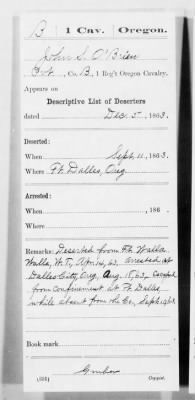 B | 1 Cav. | Oregon.
John S. O'Brien
Co. B, 1 Reg't Oregon Cavalry.
Appears on
Descriptive List of Deserters
dated Dec. 5, 1863.
Deserted:
When Sept. 11, 1863.
Where Ft. Dalles, Oreg
Arrested:
When , 186 .
Where
Remarks: Deserted from Ft. Walla
Walla, W.T., Apr. 63, arrested at
Dalles City, Oreg. Aug. 18, 63, Escaped
from confinement at Ft. Dalles
while absent from the Co., Sept. 1863
Book mark
Copyist.